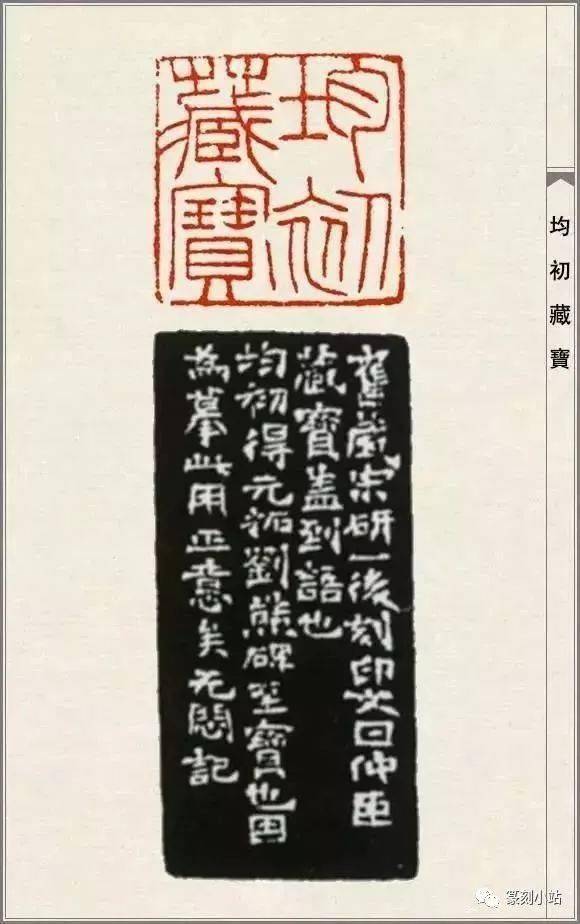 均初
藏寶
均初藏寶
舊藏宋研一後刻印文曰仲臣
藏寶盖到語也
均初得元拓劉熊碑至寶也因
為摹此用正意矣无悶記
篆刻小站